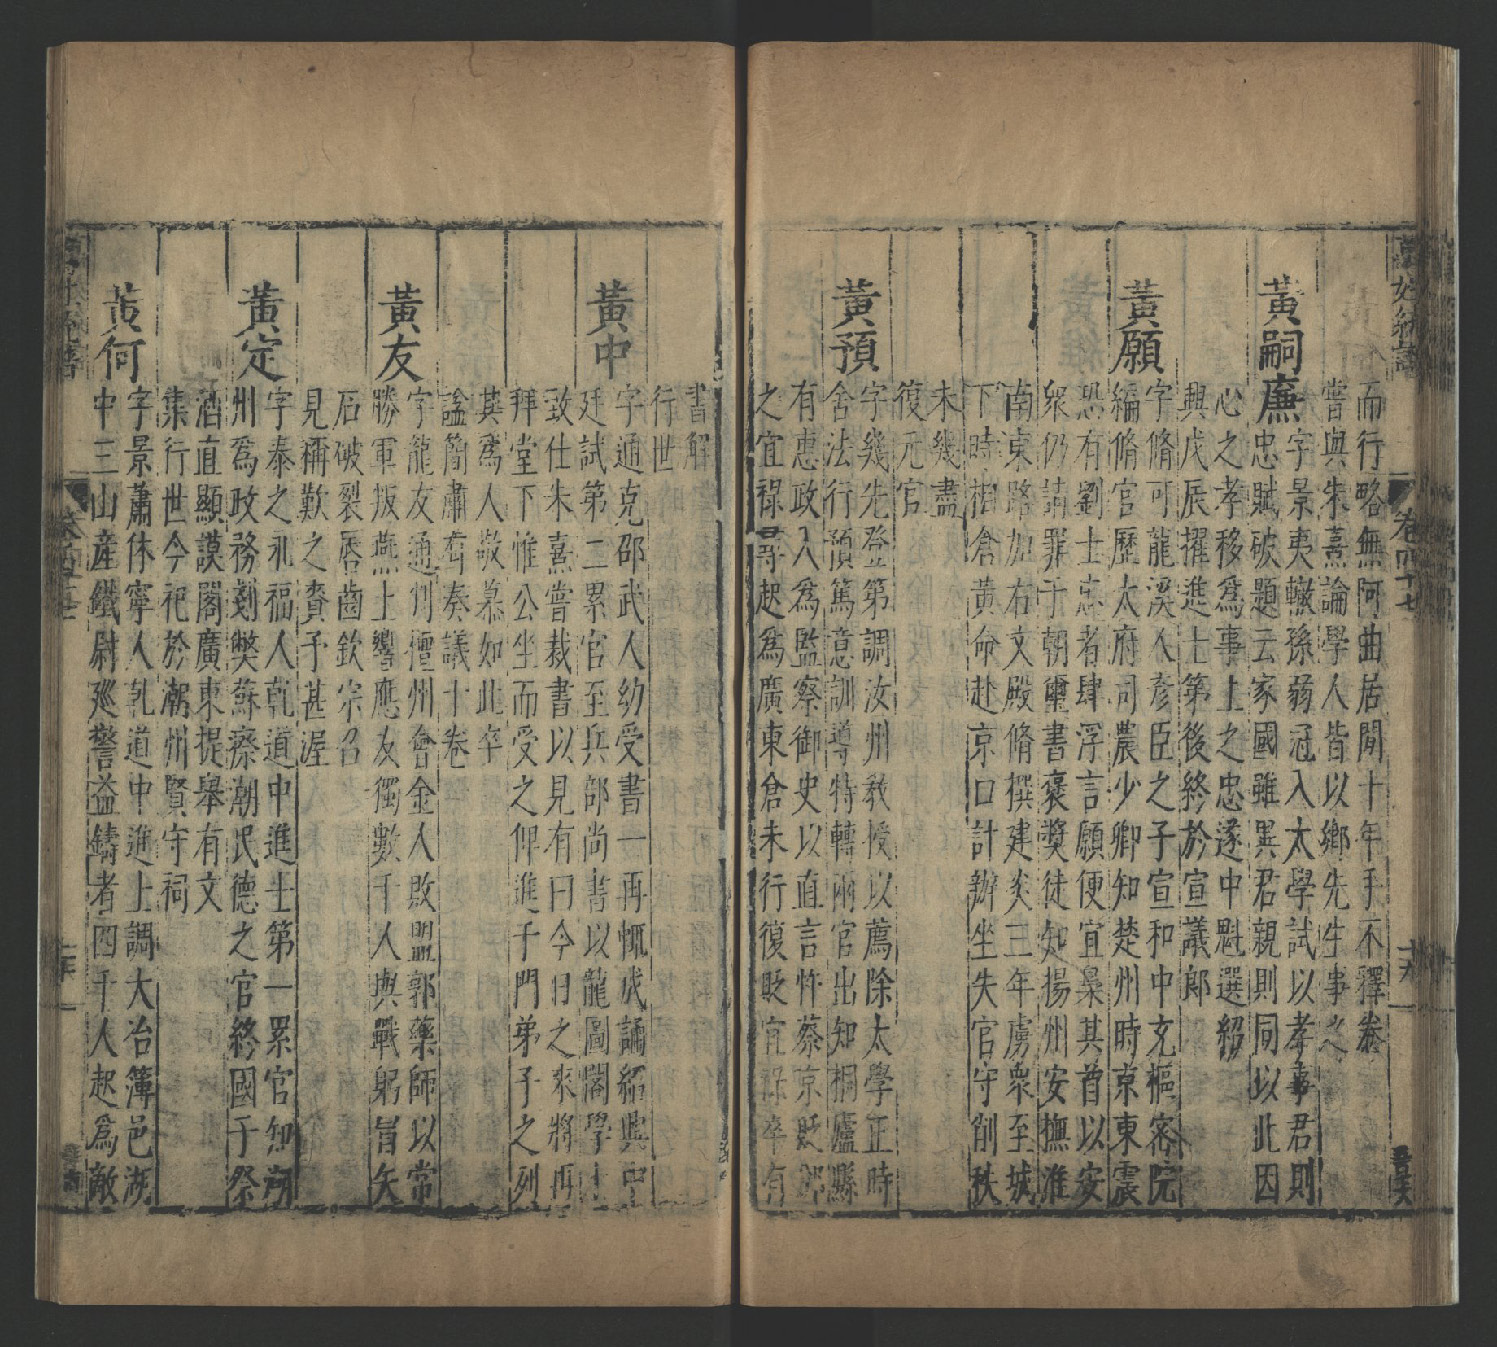 萬姓統譜
卷四十七
十九
而行略無阿曲居閒十年手不釋卷
嘗與朱熹論學人皆以鄉先生事之
黃嗣廉
字景夷轍孫弱冠入太學試以孝事君則
忠賦破題云家國雖異君親則同以此因
心之孝移爲事上之忠遂中魁選紹
興戊辰擢進士第後終於宣議郎
黃願
字脩可龍溪人彥臣之子宣和中充樞密院
編脩官歷太府司農少卿知楚州時京東震
恐有劉士忠者肆浮言願便宜梟其首以安
衆仍請罪于朝璽書褒獎徒知揚州安撫淮
南東路加右文殿脩撰建炎三年虜衆至城
下時相倉黃命赴京口計辦坐失官守削秩
未幾盡
復元官
黃預
字幾先登第調汝州敎授以薦除太學正時
舍法行預篤意訓導特轉兩官出知桐廬縣
有惠政入爲監察御史以直言忤蔡京貶
之宜祿尋起爲廣東倉未行復貶宜祿卒有
書解
行世
黃中
字通克邵武人幼受書一再輒成誦紹興中
廷試第二累官至兵部尚書以龍圖閣學士
致仕朱熹嘗裁書以見有曰今日之來將再
拜堂下惟公坐而受之俾進于門弟子之列
其爲人敬慕如此卒
謚簡肅有奏議十卷
黃友
字龍友通州儋州會金人敗盟郭藥師以常
勝軍扳燕士響應友獨數千人與戰躬冒矢
石破裂唇齒欽宗召
見稱歎之賚予甚渥
黃定
字泰之永福人乾道中進士第一累官知潮
州爲政務剗弊蘇瘵潮民德之官終國子祭
酒直顯謨閣廣東提舉有文
集行世今祀於潮州賢守祠
黃何
字景蕭休寧人乾道中進士調大冶簿邑湖
中三山產鐵尉廵警益鑄者四千人起爲敵